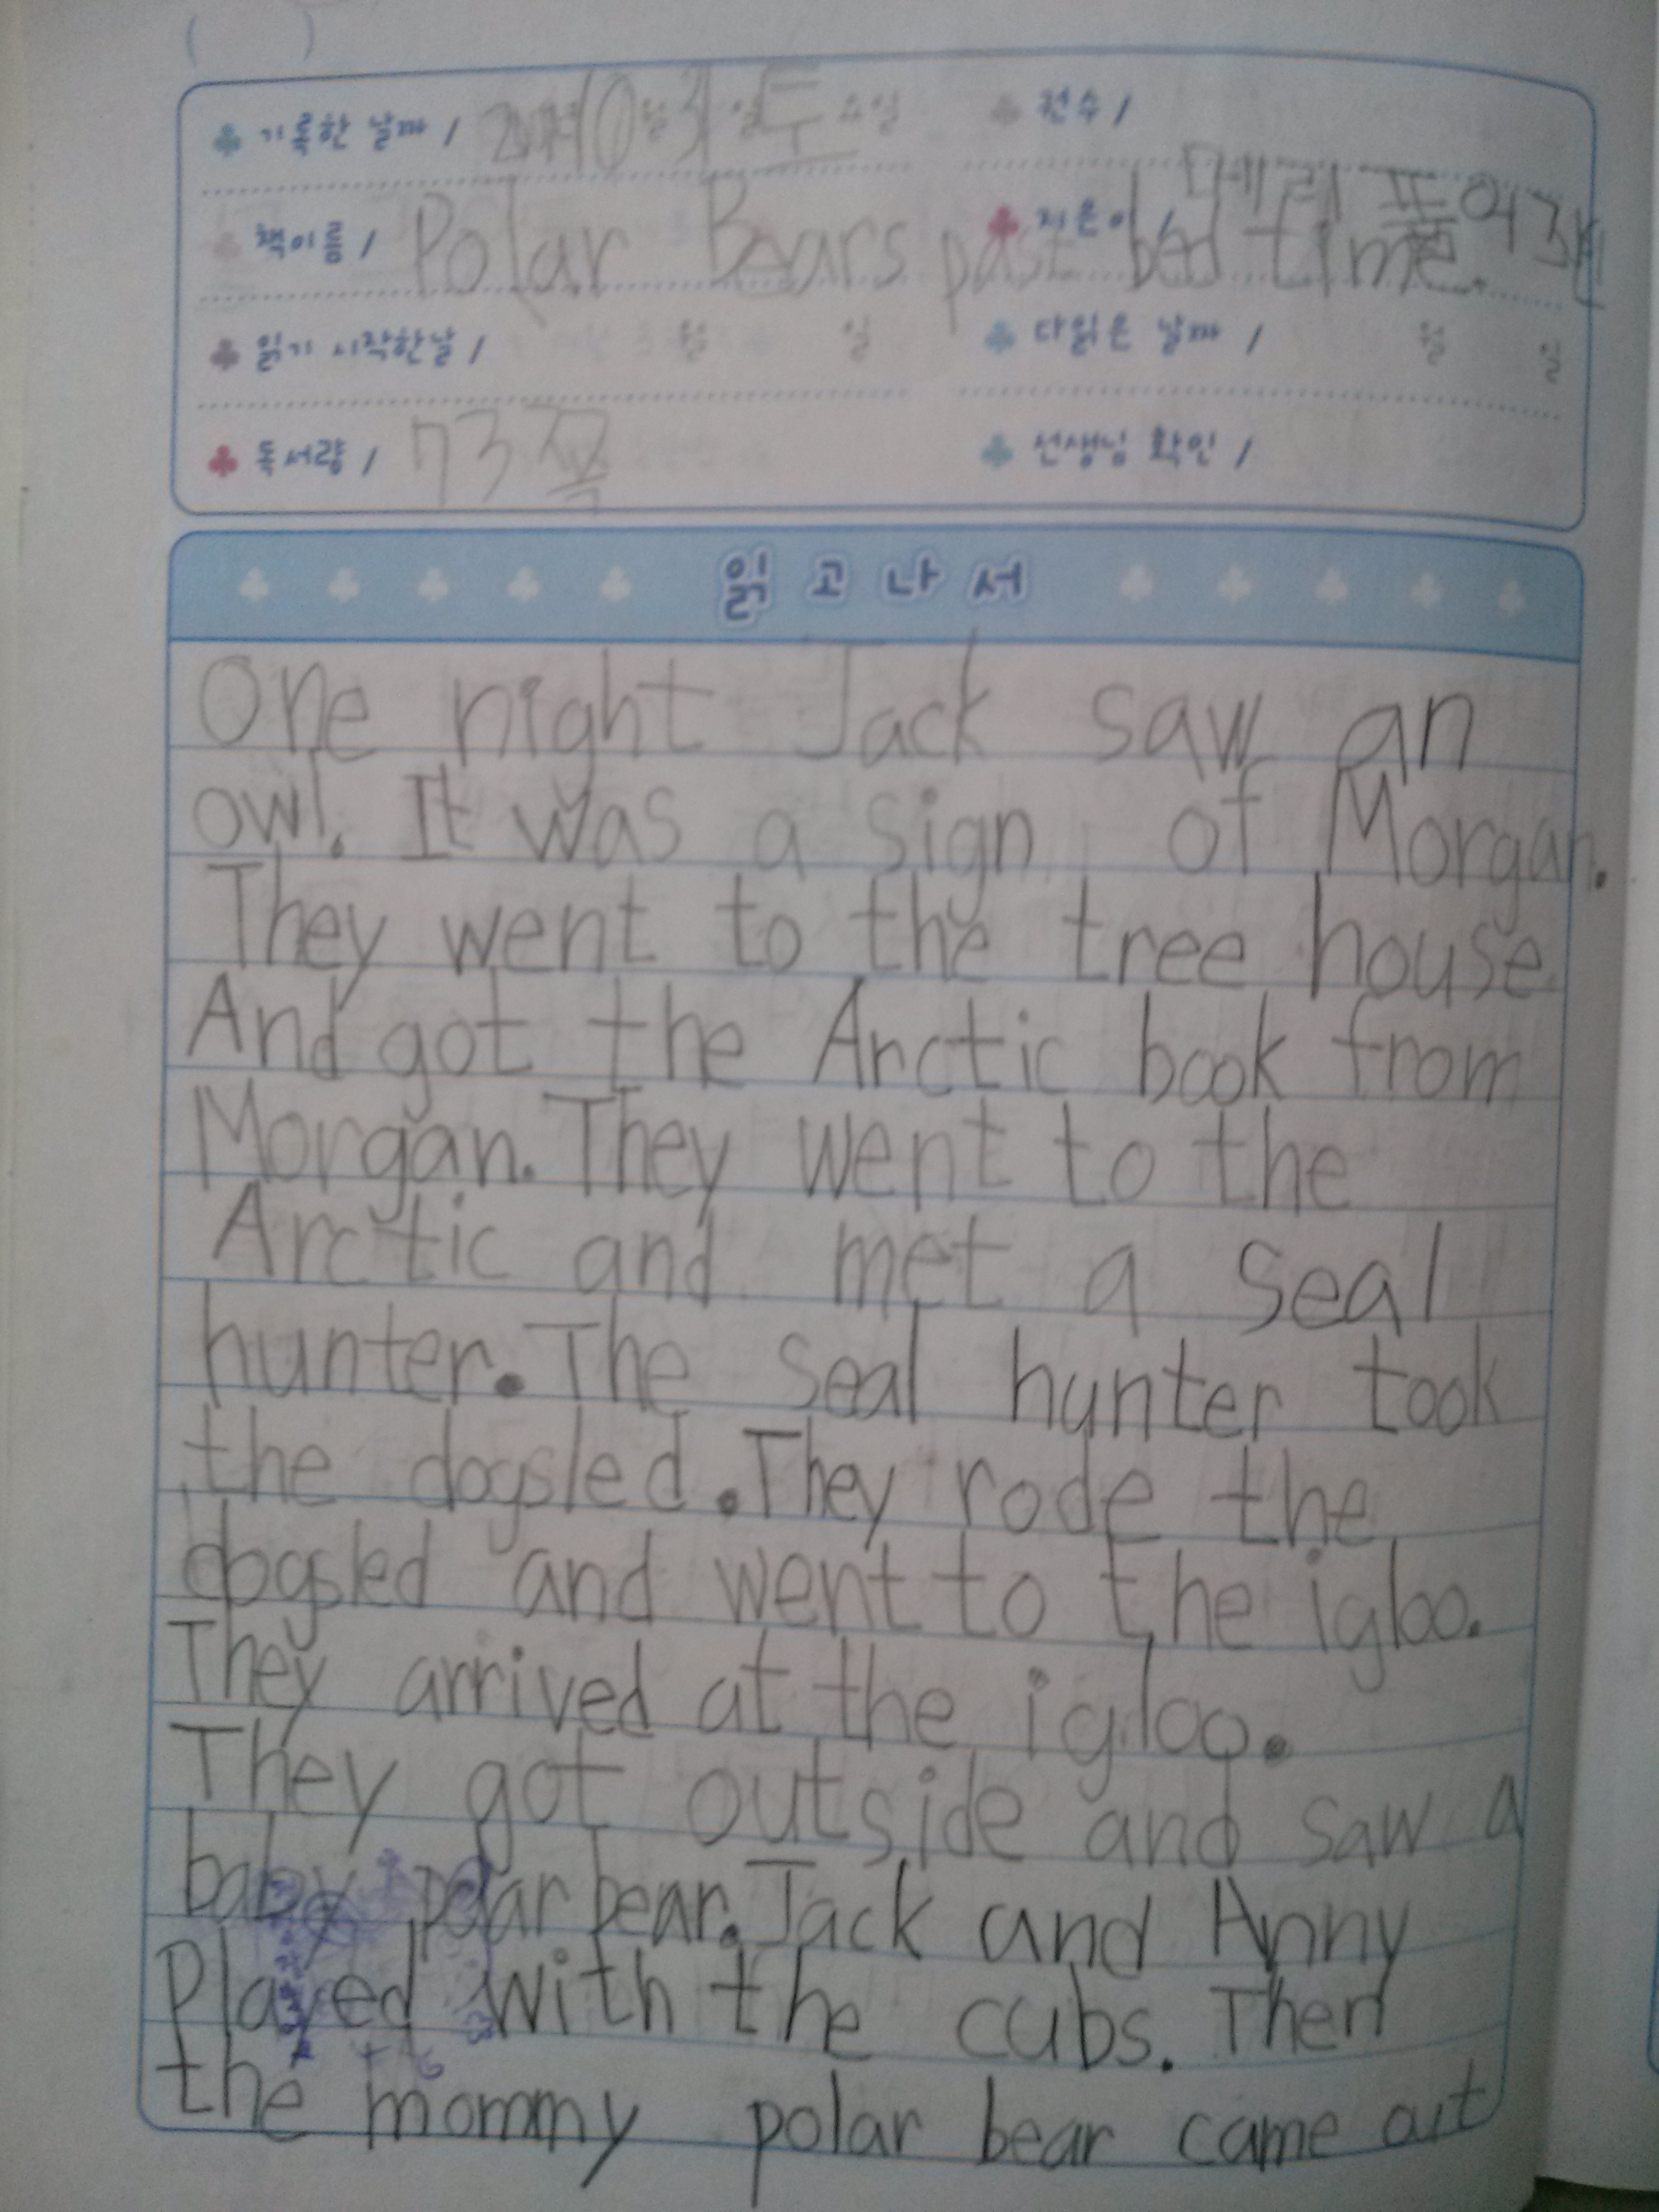 ( )
기록한 날짜 / 월 일 토 요일 권수 /
책이름 / Polar Bears past bed time. 지은이 / 메리 폽 어즈번
읽기 시작한날 / 월 일 다읽은 날짜 / 월 일
독서량 / 73쪽 선생님 확인 /
읽고나서
One night Jack saw an
owl. It was a sign of Morgan.
They went to the tree house
And got the Arctic book from
Morgan. They went to the
Arctic and met a seal
hunter. The seal hunter took
the dogsled. They rode the
dogsled and went to the igloo.
They arrived at the igloo.
They got outside and saw a
baby polar bear. Jack and Anny
Played with the cubs. Then
the mommy polar bear came out